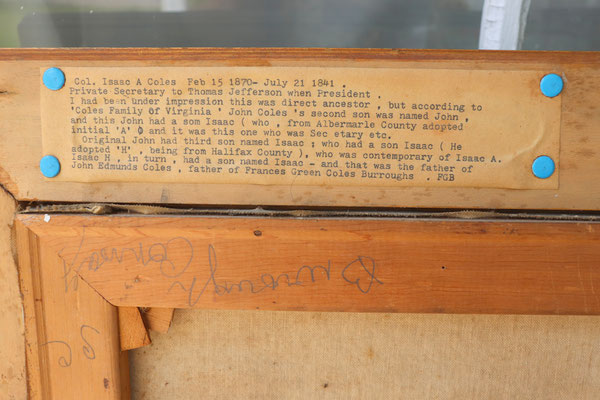 Col. Isaac A Coles Feb 15 1870- July 21 1841 .
Private Secretary to Thomas Jefferson when President .
I had been under impression this was direct ancestor , but according to
'Coles Family of Virginia ' John Coles 's second son was named John ,
and this John had a som Isaac ( who , from Albermarle County adopted
initial 'A' and it was this one who was Sec etary etc.
Original John had third son named Isaac ; who had a son Isaac ( He
adopted 'H' , being from Halifax County ), who was contemporary of Isaac A.
Isaac H . in turn , had a son named Isaac - and that was the father of
John Edmunds Coles , father of Frances Green Coles Burroughs . FGB
Burrough